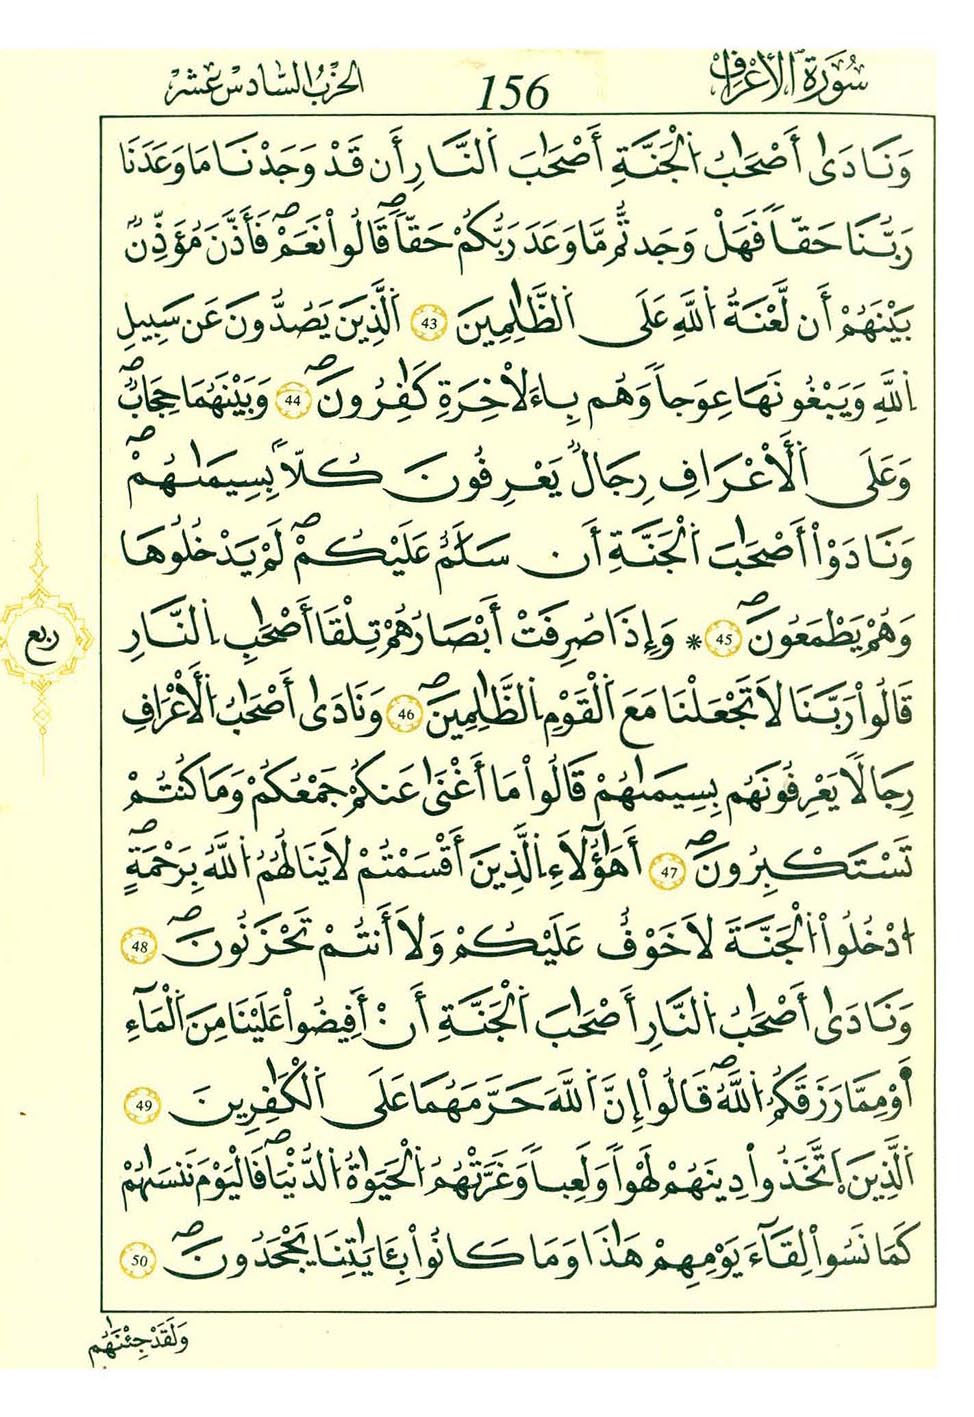 سُورَةُ الأَعْرَافِ
156
الحِزْبُ السَّادِسَ عَشَرَ
وَنَادَىٰ أَصْحَٰبُ اُ۬لْجَنَّةِ أَصْحَٰبَ اَ۬لنَّارِ أَن قَدْ وَجَدْنَا مَا وَعَدَنَا
رَبُّنَا حَقّاً فَهَلْ وَجَدتُّم مَّا وَعَدَ رَبُّكُمْ حَقّاًۖ قَالُواْ نَعَمْۖ فَأَذَّنَ مُؤَذِّنُۢ
بَيْنَهُمْ أَن لَّعْنَةُ اُ۬للَّهِ عَلَى اَ۬لظَّٰلِمِينَ 43 اَ۬لَّذِينَ يَصُدُّونَ عَن سَبِيلِ
اِ۬للَّهِ وَيَبْغُونَهَا عِوَجاً وَهُم بِالَاخِرَةِ كَٰفِرُونَۖ 44 وَبَيْنَهُمَا حِجَابٌۖ
وَعَلَى اَ۬لَاعْرَافِ رِجَالٌ يَعْرِفُونَ كُلّاَۢ بِسِيمَىٰهُمْۖ
وَنَادَوَاْ اَصْحَٰبَ اَ۬لْجَنَّةِ أَن سَلَٰمٌ عَلَيْكُمْۖ لَمْ يَدْخُلُوهَا
وَهُمْ يَطْمَعُونَۖ 45 * وَإِذَا صُرِفَتَ اَبْصَٰرُهُمْ تِلْقَا أَصْحَٰبِ اِ۬لنَّارِ
قَالُواْ رَبَّنَا لَا تَجْعَلْنَا مَعَ اَ۬لْقَوْمِ اِ۬لظَّٰلِمِينَۖ 46 وَنَادَىٰ أَصْحَٰبُ اُ۬لَاعْرَافِ
رِجَالًا يَعْرِفُونَهُم بِسِيمَىٰهُمْ قَالُواْ مَا أَغْنَىٰ عَنكُمْ جَمْعُكُمْ وَمَا كُنتُمْ
تَسْتَكْبِرُونَۖ 47 أَهَٰؤُلَاءِ اِ۬لَّذِينَ أَقْسَمْتُمْ لَا يَنَالُهُمُ اُ۬للَّهُ بِرَحْمَةٍۖ
اُ۟دْخُلُواْ اُ۬لْجَنَّةَ لَا خَوْفٌ عَلَيْكُمْ وَلَا أَنتُمْ تَحْزَنُونَۖ 48
وَنَادَىٰ أَصْحَٰبُ اُ۬لنَّارِ أَصْحَٰبَ اَ۬لْجَنَّةِ أَنَ اَفِيضُواْ عَلَيْنَا مِنَ اَ۬لْمَآءِ
اَ۬وْ مِمَّا رَزَقَكُمُ اُ۬للَّهُۖ قَالُواْ إِنَّ اَ۬للَّهَ حَرَّمَهُمَا عَلَى اَ۬لْكَٰفِرِينَ 49
اَ۬لَّذِينَ اَ۪تَّخَذُواْ دِينَهُمْ لَهْواً وَلَعِباً وَغَرَّتْهُمُ اُ۬لْحَيَوٰةُ اُ۬لدُّنْيَاۖ فَالْيَوْمَ نَنسَىٰهُمْ
كَمَا نَسُواْ لِقَآءَ يَوْمِهِمْ هَٰذَا وَمَا كَانُواْ بِـَٔايَٰتِنَا يَجْحَدُونَۖ 50
وَلَقَدْ جِئْنَٰهُم
ربع